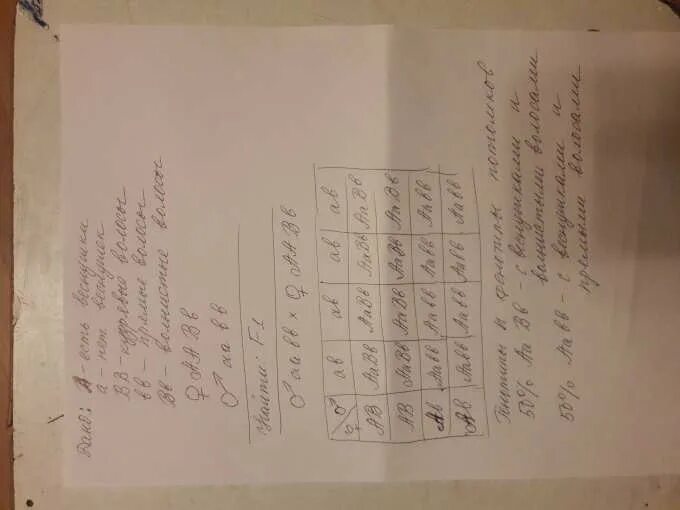 Дано: А - есть веснушки
а - нет веснушек
ВВ - кудрявые волосы
вв - прямые волосы
Вв - волнистые волосы
♀ААВв
♂аавв
Найти: F1
♂аавв х ♀ААВв
♀ ♂ ав ав ав ав
АВ АаВв АаВв АаВв АаВв
АВ АаВв АаВв АаВв АаВв
Ав Аавв Аавв Аавв Аавв
Ав Аавв Аавв Аавв Аавв
Генотипы и фенотипы потомков
50% АаВв - с веснушками и
волнистыми волосами
50% Аавв - с веснушками и
прямыми волосами